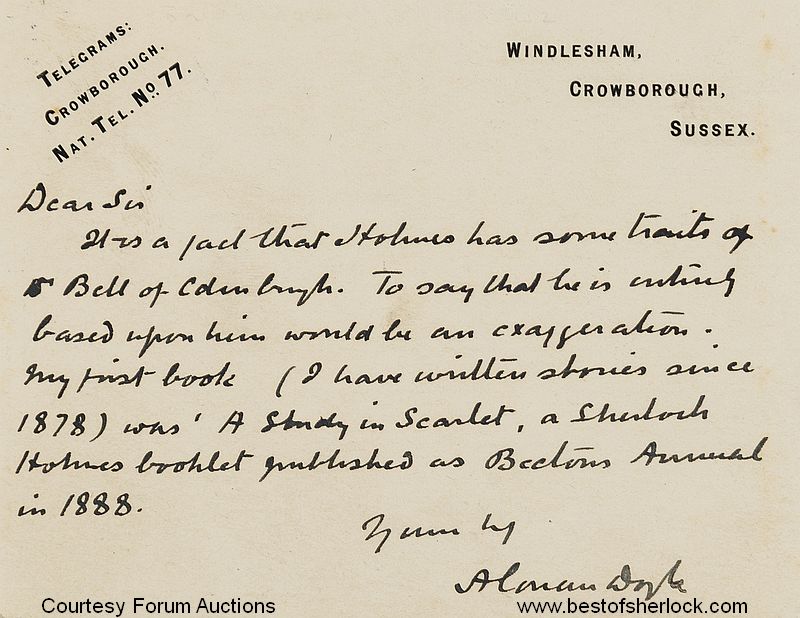 TELEGRAMS:
CROWBOROUGH.
NAT. TEL. No. 77.
WINDLESHAM,
CROWBOROUGH,
SUSSEX.
Dear Sir
It is a fact that Holmes has some traits of
Bell of Edinburgh. To say that he is entirely
based upon him would be an exaggeration.
My first book (I have written stories since
1878) was ' A Study in Scarlet, a Sherlock
Holmes booklet published as Beetons Annual
in 1888.
Yours
A Conan Doyle
Courtesy Forum Auctions
www.bestofsherlock.com